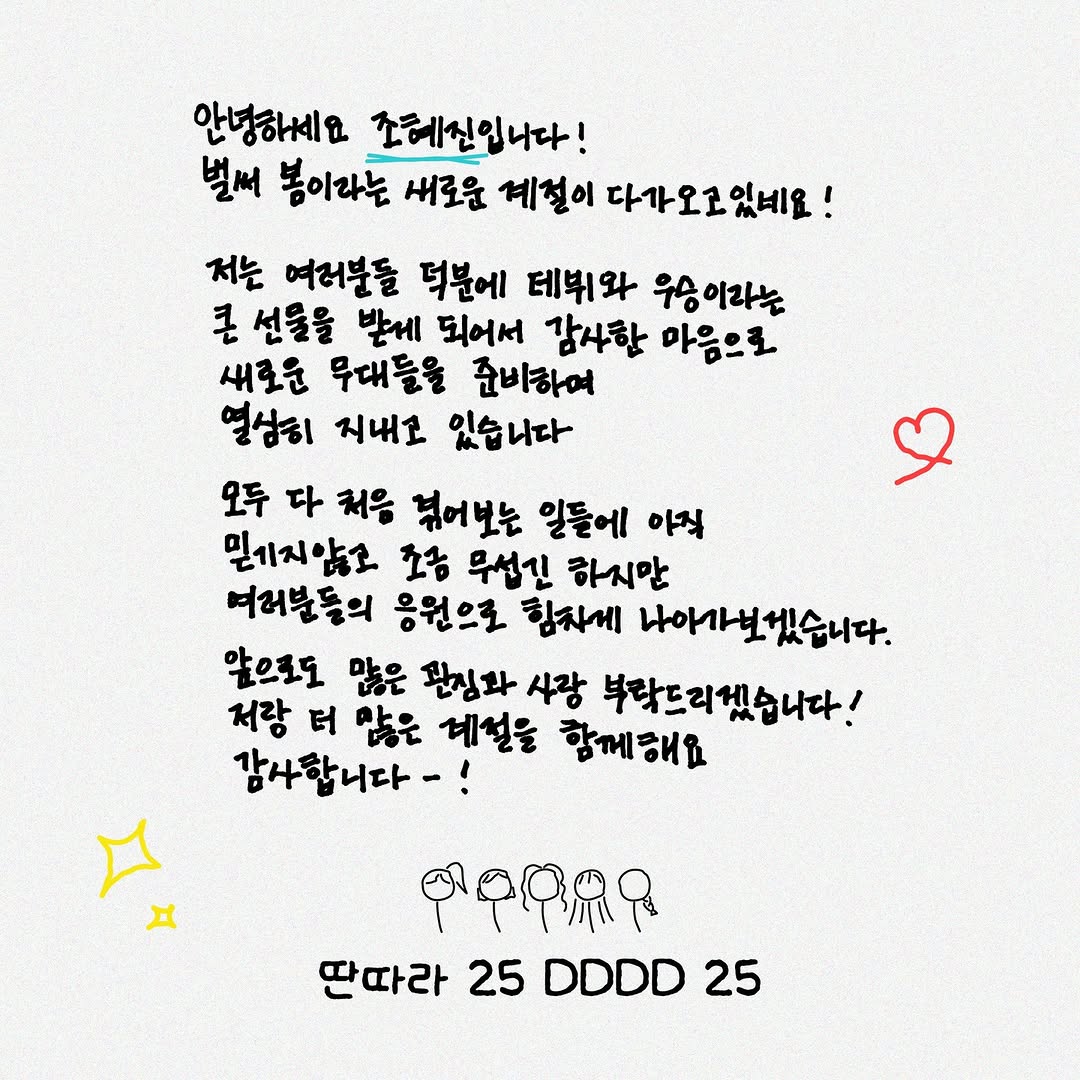 안녕하세요 조혜진입니다!
벌써 봄이라는 새로운 계절이 다가오고있네요!
저는 여러분들 덕분에 데뷔와 우승이라는
큰 선물을 받게 되어서 감사한 마음으로
새로운 무대들을 준비하며
열심히 지내고 있습니다
모두 다 처음 겪어보는 일들에 아직
믿기지않고 조금 무섭긴 하지만
여러분들의 응원으로 힘차게 나아가보겠습니다.
앞으로도 많은 관심과 사랑 부탁드리겠습니다!
저랑 더 많은 계절을 함께해요
감사합니다-!
딴따라 25 DDDD 25